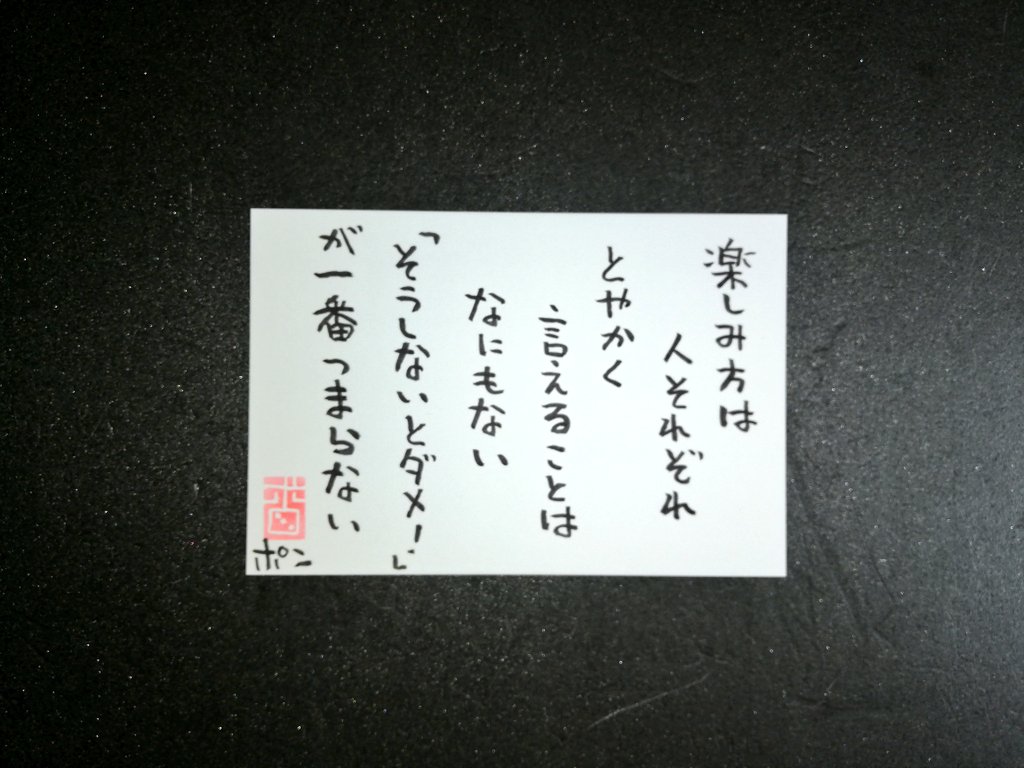 楽しみ方は
人それぞれ
とやかく
言えることは
なにもない
「そうしないとダメー」
が一番つまらない
ポン